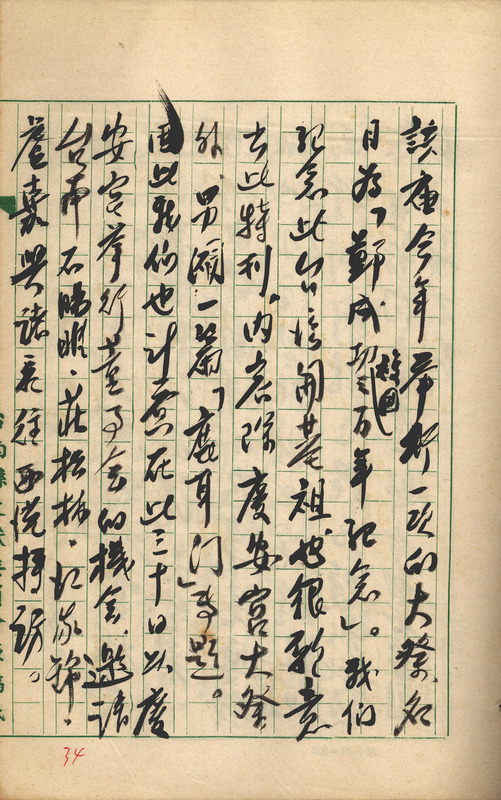 該廟今年舉行一項的大祭、名
目為「鄭成功復國三百年記念」。我們
記念此台灣開基祖、也很願意
出此特刊、內容除慶安宮大祭
外、另項一篇「鹿耳門」專題。
因此我們也計意在此三十日以慶
安宮舉行董事會的機會、邀請
台南石暘睢・莊松林・江家錦・
詹嘉興諸意往西港採訪。
34